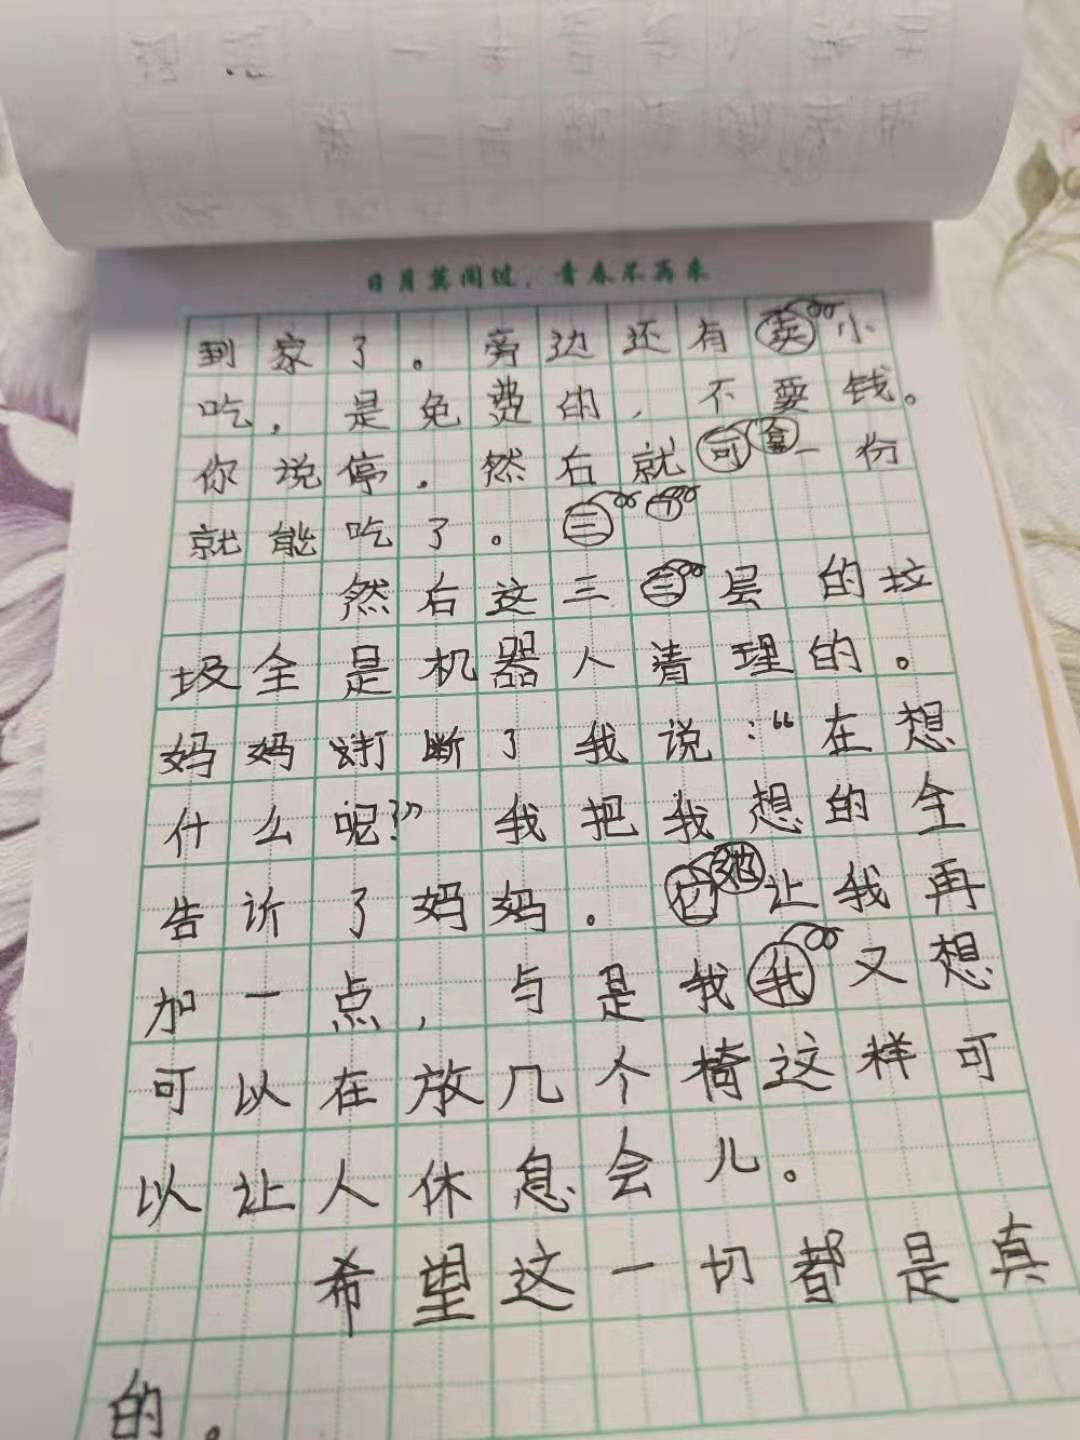 日月莫闲过，青春不再来
到家了。旁边还有卖小
吃，是免费的，不要钱。
你说停，然右就可拿一份
就能吃了。三
然右这三三层的垃
圾全是机器人清理的。
妈妈打断了我说：“在想
什么呢？”我把我想的全
告诉了妈妈。它她让我再
加一点，与是我我又想
可以在放几个椅这样可
以让人休息会儿。
希望这一切都是真
的。